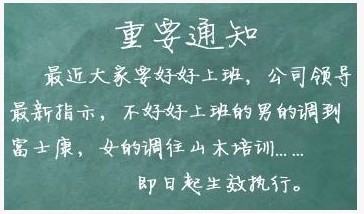 重要通知
最近大家要好好上班，公司领导
最新指示，不好好上班的男的调到
富士康，女的调往山木培训……
即日起生效执行。